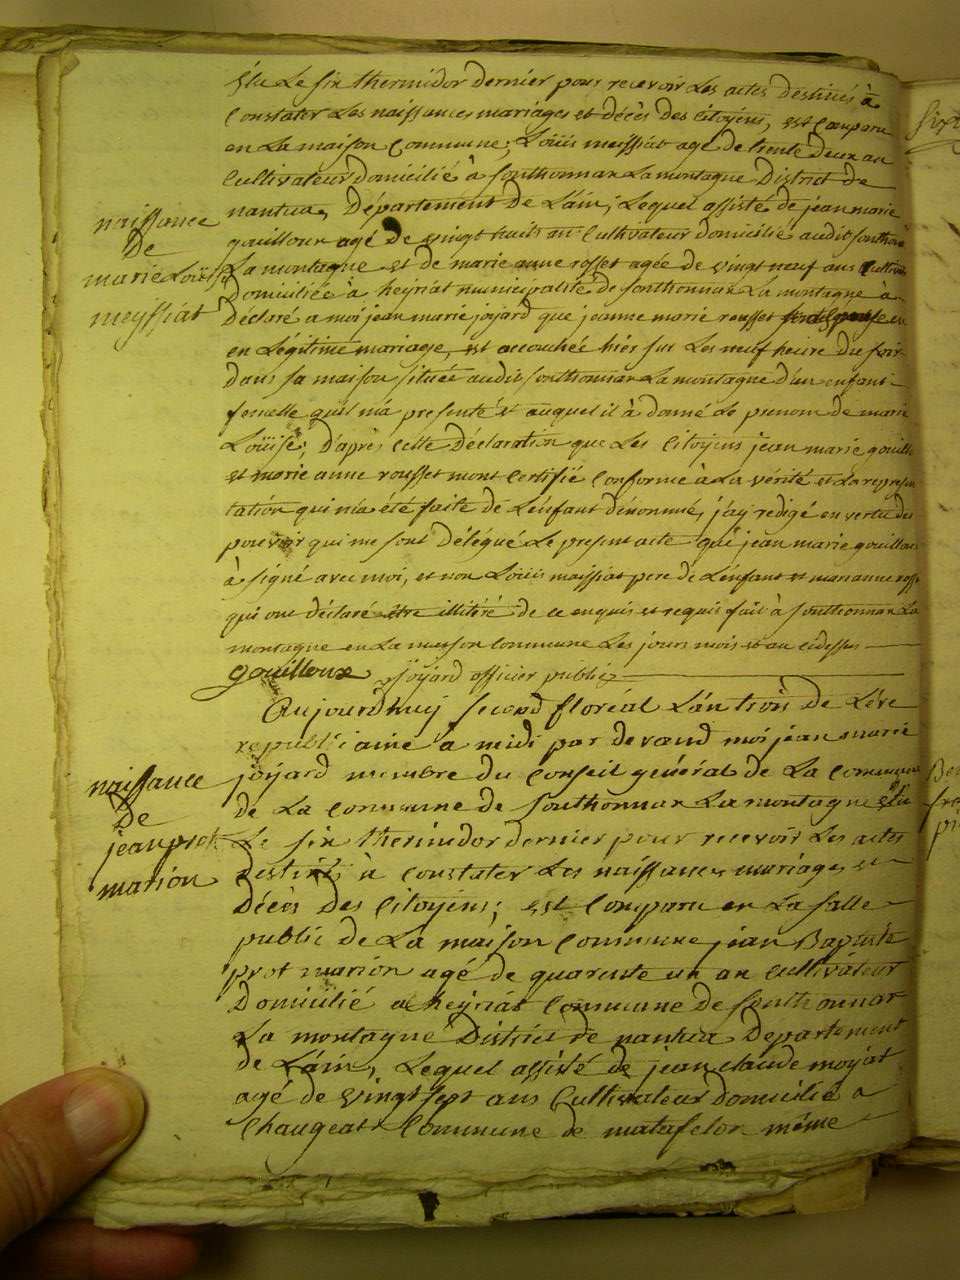 élu Le six thermidor dernier pour recevoir Les actes destinés à
Constater Les naissances mariages et décès des Citoyens, est Comparu
en La maison Commune, Loüis meissiat agé de trente deux an
Cultivateur domicilié à Sonthonnax La montagne District de
nantua, Département de L'ain, Lequel assisté de jean marie
gouilloux agé de vingt huit an Cultivateur domicilié audit Sonthonax
La montagne et de marie anne rosset agée de vingt neuf ans Cultiva
domiciliée à heyriat municipalité de Sonthonnax La montagne à
Déclaré a moi jean marie joyard que jeanne marie rousset
en Légitime mariage, est accouchée hièr sur Les neuf heure du soir
Dans sa maison située audit Sonthonnax La montagne d'un enfant
femelle qu'il m'a presenté et auquel il à donné Le prenom de marie
Loüise; D'après cette Déclaration que Les Citoyens jean marie gouillou
et marie anne rousset mont Certifié Conforme à La vérité et La represen
tation qui m'a été faite de L'enfant dénommé, j'ay redigé en vertu des
pouvoir qui me sont Délégué Le present acte que jean marie gouilloux
à signé avec moi, et non Loüis maissiat pere de L'enfant et marianne ross
qui ont déclaré être illitéré de ce enquis et requis fait à Sonthonnax La
montagne en La maison Commune Les jours mois et an cidessus
gouilloux joyard officier public
naissance
De
marie Loüise
meyssiat
Aujourdhuy second floréal L'an trois de L'ére
republicaine à midi par devand moi jean marie
joyard membre du Conseil général de La Commune
de La Commune de Sonthonnax La montagne élu
Le six thermidor dernier pour recevoir Les actes
destinés à Constater Les naissances mariages et
Décès Des Citoyens; est Comparu en La salle
public de La maison Commune jean Baptiste
prot marion agé de quarente un an Cultivateur
Domicilié a heyriat Commune de Sonthonnax
La montagne District de nantua Departement
de L'ain, Lequel assisté de jean claude moyat
agé de vingt sept ans Cultivateur domicilié a
Chaugeat Commune de matafelon même
naissance
De
jean prot
marion